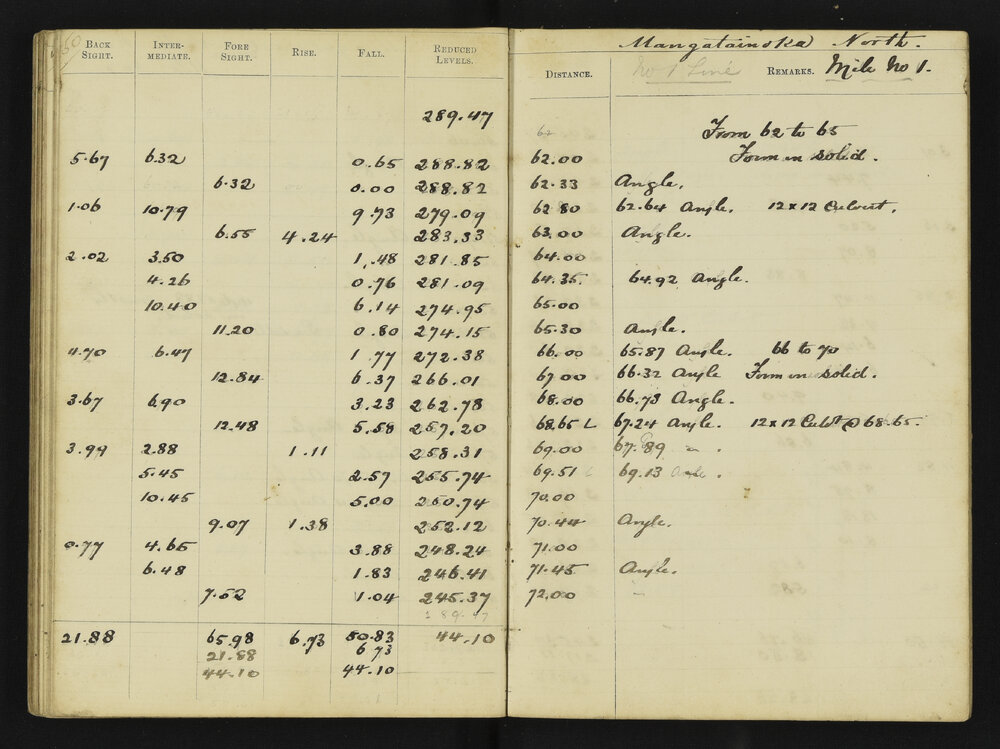 BACK SIGHT. INTER-MEDIATE. FORE SIGHT. RISE. FALL. REDUCED LEVELS.
289.47
5.67 6.32 0.65 288.82
6.32 0.00 288.82
1.06 10.79 9.73 279.09
6.55 4.24 283.33
2.02 3.50 1.48 281.85
4.26 0.76 281.09
10.40 6.14 274.95
11.20 0.80 274.15
4.70 6.47 1.77 272.38
12.84 6.37 266.01
3.67 6.90 3.23 262.78
12.48 5.58 257.20
3.99 2.88 1.11 258.31
5.45 2.57 255.74
10.45 5.00 250.74
9.07 1.38 252.12
0.77 4.65 3.88 248.24
6.48 1.83 246.41
7.52 1.04 245.37
189.47
21.88 65.98 6.73 50.83 44.10
21.88 6 73
44.10 44.10
Mangatainoka North.
DISTANCE. No 1 Line REMARKS. Mile No 1.
62 From 62 to 65
62.00 Form in solid.
62.33 Angle.
62.80 62.64 Angle. 12x12 Culvert.
63.00 Angle.
64.00
64.35 64.92 Angle.
65.00
65.30 Angle.
66.00 65.87 Angle. 66 to 70
67.00 66.32 Angle Form in solid.
68.00 66.73 Angle.
68.65 L 67.24 Angle. 12x12 Culvt @ 68.65.
69.00 67.89 " .
69.51 69.13 Angle.
70.00
70.44 Angle.
71.00
71.45 Angle.
72.00